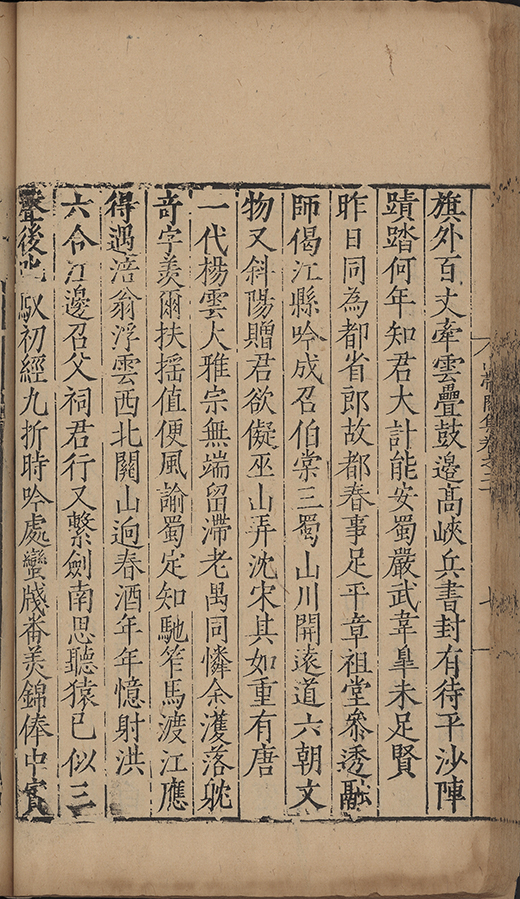 旗外百丈牽雲疊鼓邊高峽兵書封有待平沙陣
蹟踏何年知君大計能安蜀嚴武韋臯未足賢
昨日同為都省郎故都春事足平章祖堂叅透融
師偈江縣吟成召伯棠三蜀山川開遠道六朝文
物又斜陽贈君欲儗巫山弄沈宋其如重有唐
一代楊雲大雅宗無端留滯老禺同憐余濩落躭
奇字羨爾扶摇值便風諭蜀定知馳笮馬渡江應
得遇涪翁浮雲西北關山迥春酒年年憶射洪
六令江邊召父祠君行又繫劍南思聽猿已似三
聲後叱馭初經九折時吟處蠻牋番美錦俸中賨